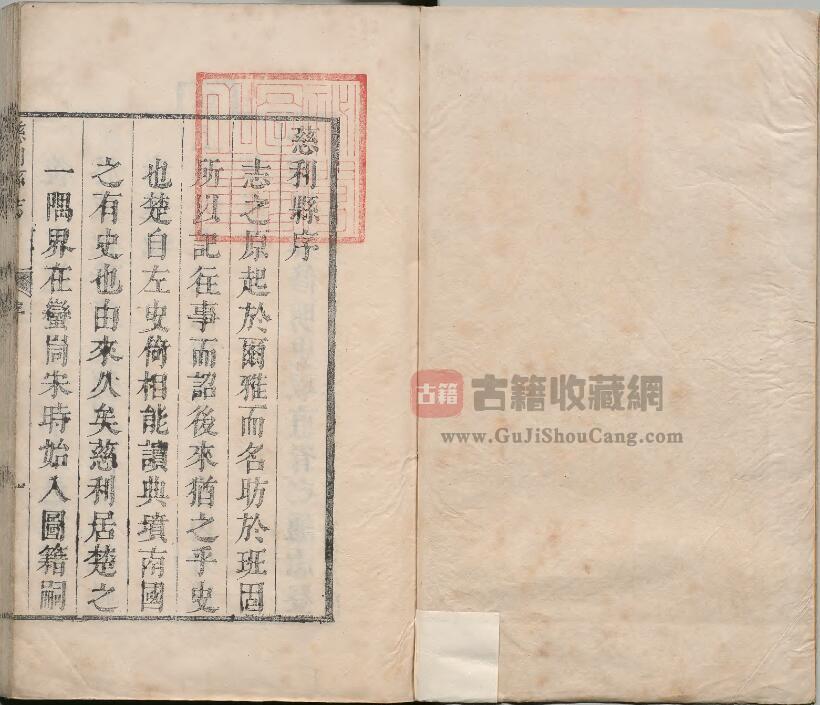 慈利縣序
志之原起於爾雅而名昉於班固
所以記往事而詔後來猶之乎史
也楚自左史倚相能讀典墳南國
之有史也由來久矣慈利居楚之
一隅界在蠻峝宋時始入圖籍嗣
慈利縣志
序
一
古籍
古籍收藏網
www.GuJiShouCang.com